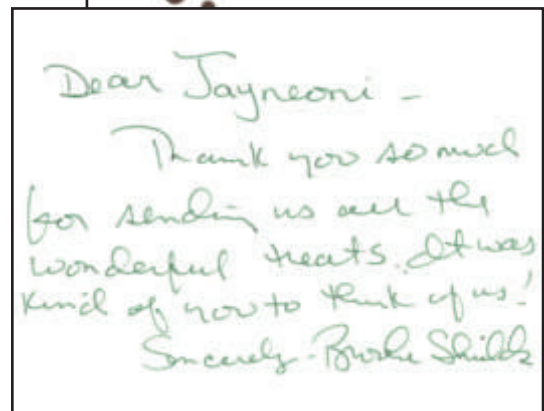 Dear Jayneoni -
Thank you so much
for sending us all the
wonderful treats. It was
kind of you to think of us!
Sincerely - Brooke Shields